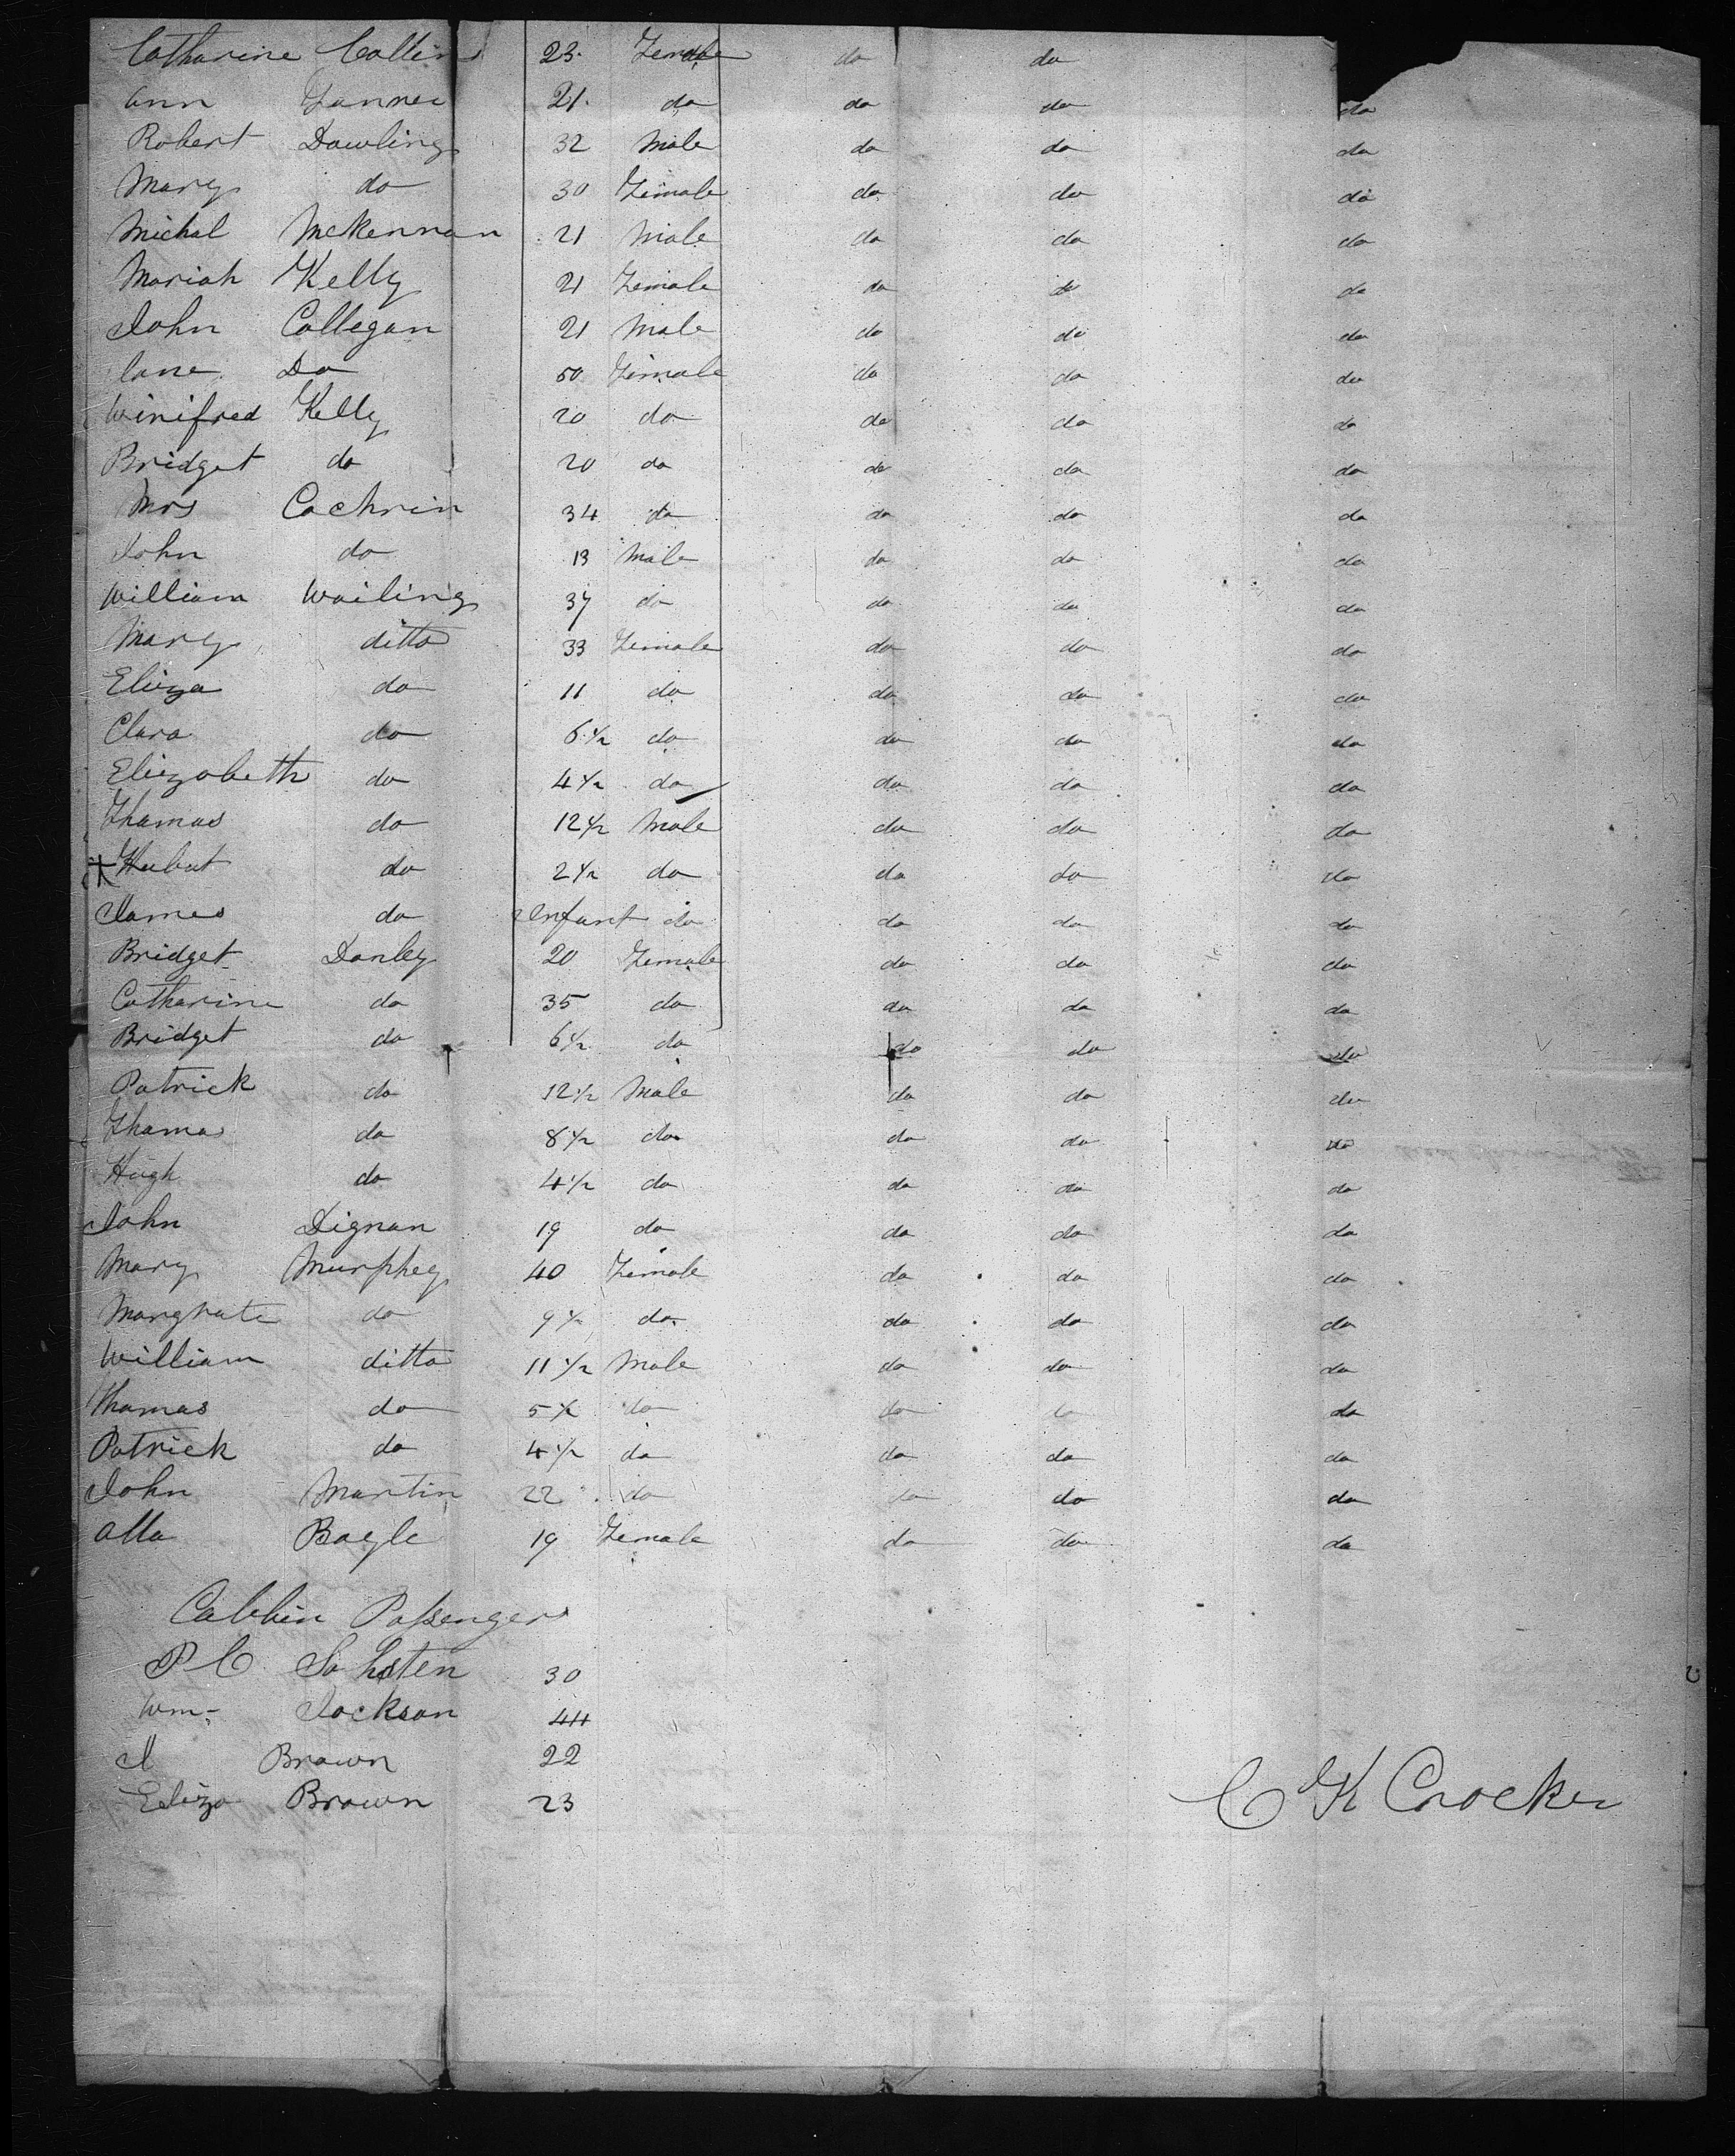 Catharine Collins 23 Female do do
Ann 21 do do do do
Robert Dowling 32 Male do do do
Mary do 30 Female do do do
Michal McKennan 21 Male do do do
Mariah Kelly 21 Female do do do
John Collegan 21 Male do do do
Jane Do 50 Female do do do
Winifred Kelly 20 do do do do
Bridget do 20 do do do do
Mrs Cochrin 34 do do do do
John do 13 Male do do do
William Wailing 37 do do do do
Mary ditto 33 Female do do do
Elieza do 11 do do do do
Clara do 6 1/2 do do do do
Eliezabeth do 4 1/2 do do do do
Thomas do 12 1/2 Male do do do
+ Hubut do 2 1/2 do do do do
James do Infant do do do do
Bridget Donley 20 Female do do do
Catharine do 35 do do do do
Bridget do 6 1/2 do do do do
Patrick do 12 1/2 Male do do do
Thomas do 8 1/2 do do do do
Hugh do 4 1/2 do do do do
John Dignan 19 do do do do
Mary Murphey 40 Female do do do
Margrate do 9 1/2 do do do do
William ditto 11 1/2 Male do do do
Thomas do 5 1/2 do do do do
Patrick do 4 1/2 do do do do
John Martin 22 do do do do
Alla Bagle 19 Female do do do
Cabbin Passengers
P C 30
Wm Jackson 44
J Brown 22
Eliza Brown 23
C K Crocker